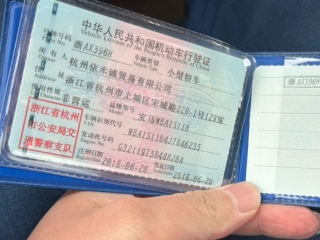 中华人民共和国机动车行驶证
Vehicle License of the People's Republic of China
浙AX396H 车辆类型 小型轿车
Vehicle Type
所有人 杭州依禾诚贸易有限公司
浙江省杭州市上城区宋城路220-1号129室
非营运 品牌型号 宝马WBA1S110
浙江省杭州市公安局交通警察支队
车辆识别代号 WBA1S1104J7B46235
VIN
发动机号码
Engine No.
注册日期 2018-06-20 发证日期 2018-06-20
Register Date Issue Date
浙AX396H